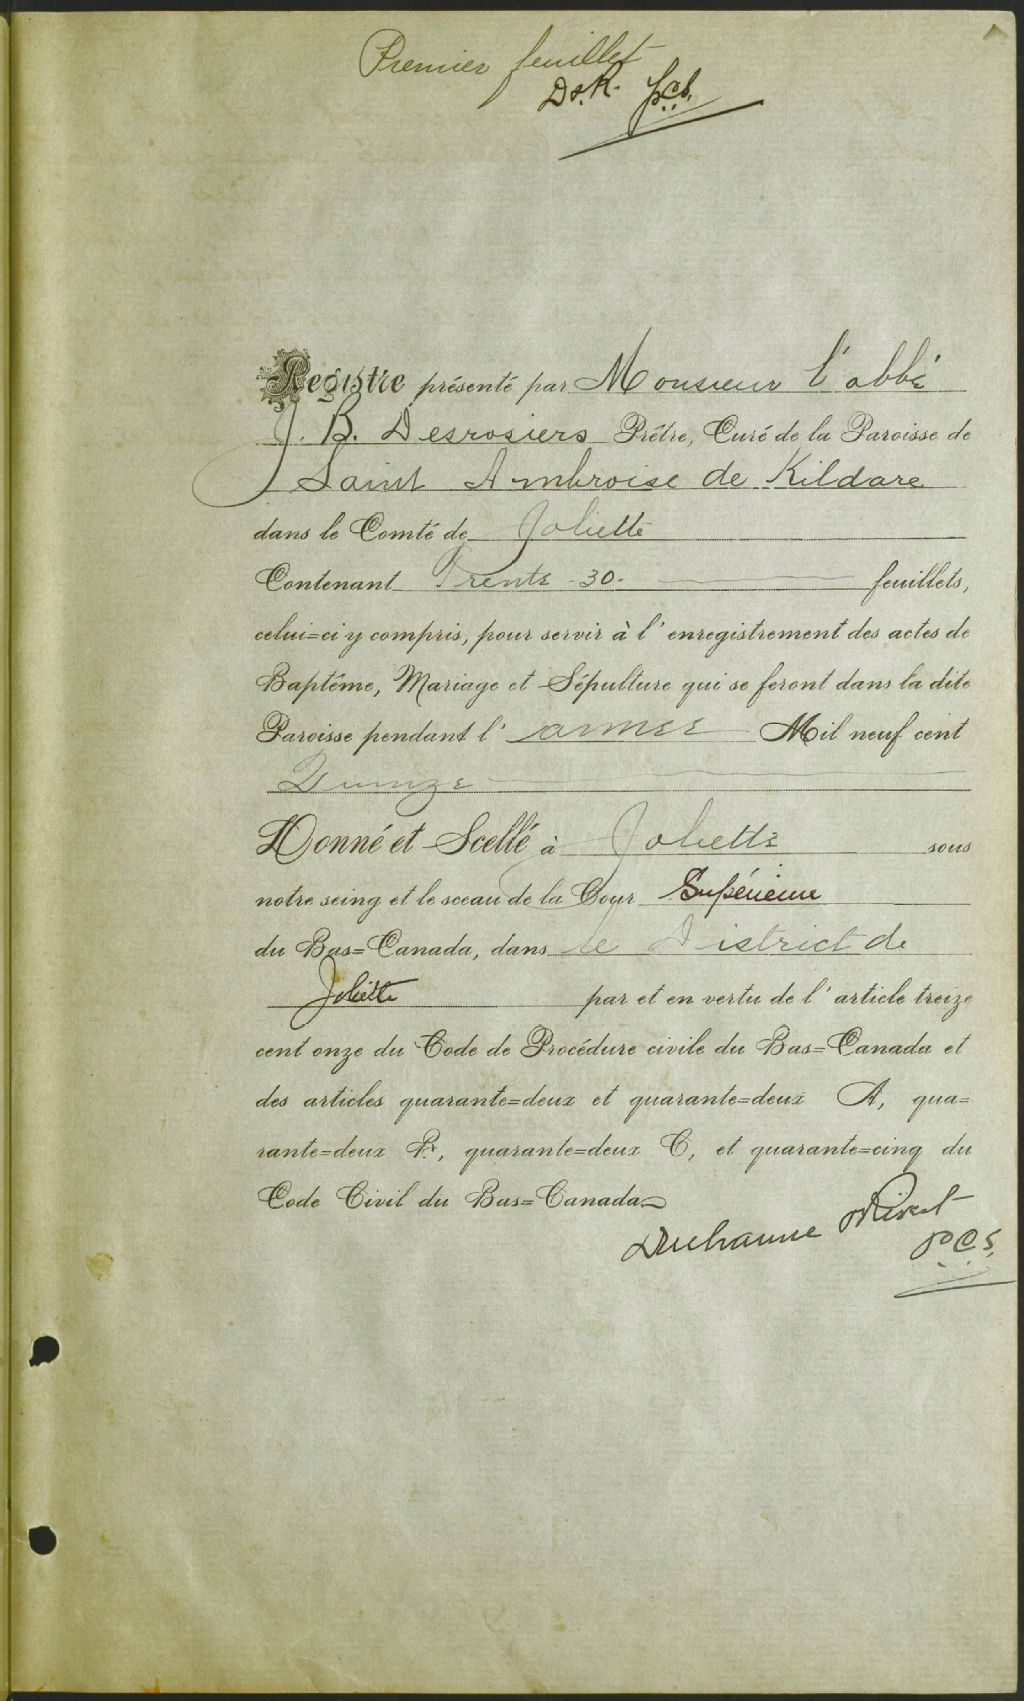 Premier feuillet
D&R. p.c.s.
Registre présenté par Monsieur l'abbé
J. B. Desrosiers Prêtre, Curé de la Paroisse de
Saint Ambroise de Kildare
dans le Comté de Joliette
Contenant Trente -30- feuillets,
celui=ci y compris, pour servir à l'enregistrement des actes de
Baptême, Mariage et Sépulture qui se feront dans la dite
Paroisse pendant l'année Mil neuf cent
Donné et Scellé à Joliette sous
notre seing et le sceau de la Cour Supérieure
du Bas=Canada, dans le District de
Joliette par et en vertu de l'article treize
cent onze du Code de Procédure civile du Bas=Canada et
des articles quarante=deux et quarante=deux A, qua=
rante=deux B, quarante=deux C, et quarante=cinq du
Code Civil du Bas=Canada
Ducharme & Rivest
P.C.S.